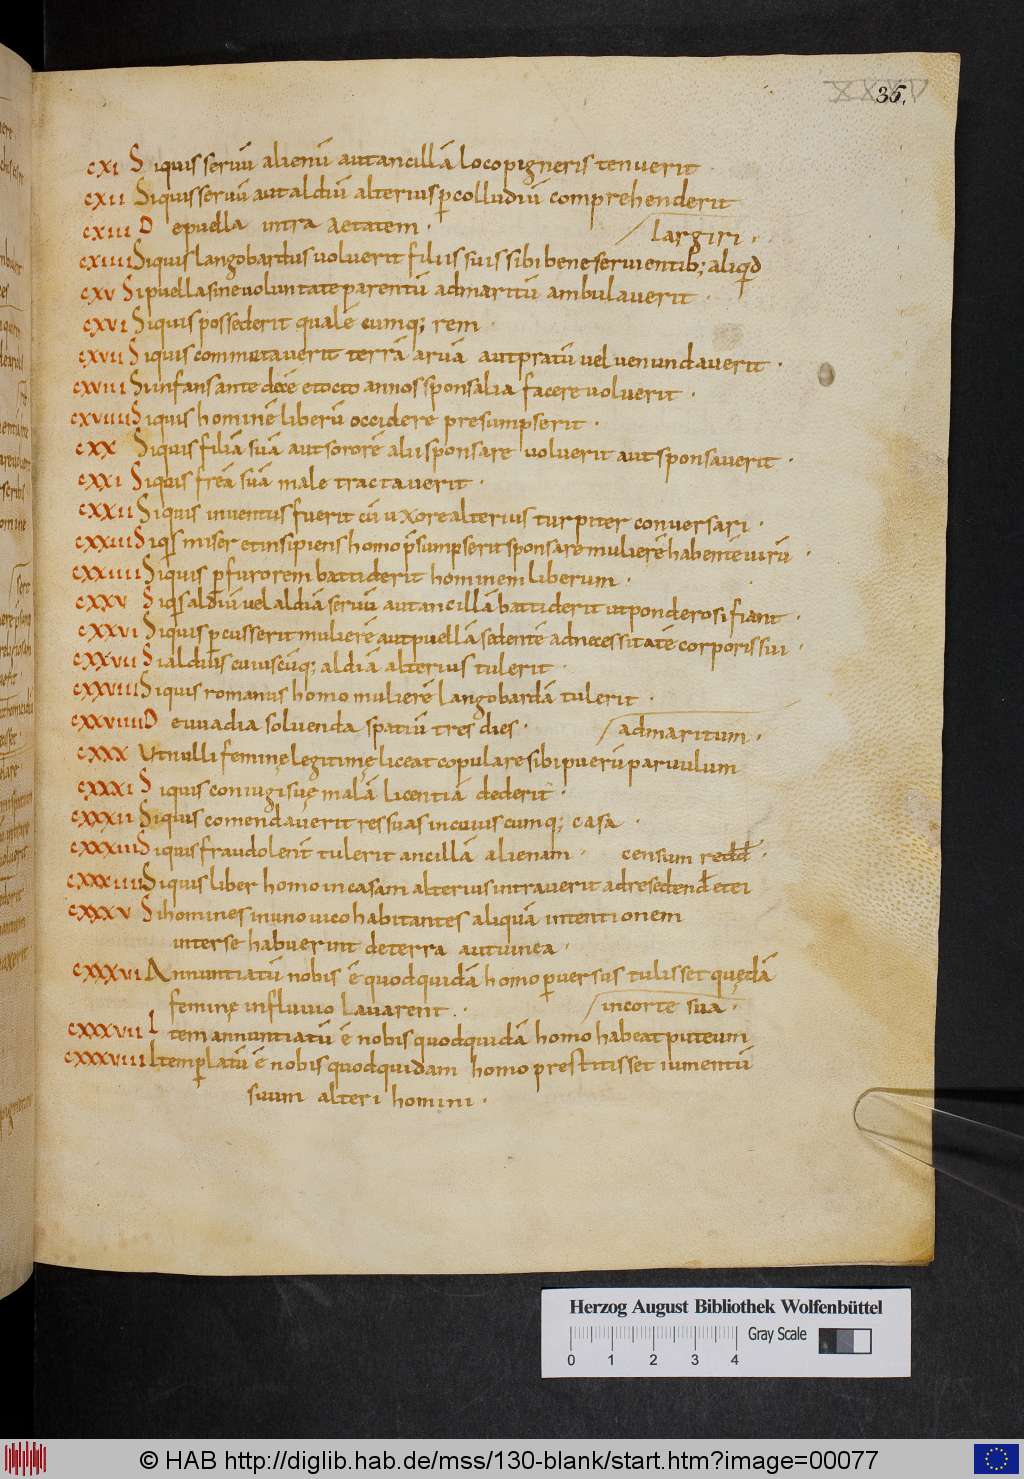 35.
XXXV
cxi Siquis seruū alienū aut ancillā loco pigneris tenuerit
cxii Siquis seruū aut aldiū alterius p colludiū comprehenderit
cxiii De puella intra aetatem · largiri ·
cxiiii Siquis langobardus voluerit filiis suis sibi bene seruientib; aliqid
cxv Si puella sine voluntate parentū ad maritū ambulauerit ·
cxvi Siquis possederit qualē cumq; rem ·
cxvii Siquis commutauerit terrā aruā aut pratū vel venundauerit ·
cxviii Si infans ante decē et octo annos sponsalia facere voluerit ·
cxviiii Siquis hominē liberū occidere presumpserit ·
cxx Siquis filiā suā aut sororē alii sponsare voluerit aut sponsauerit ·
cxxi Siquis freā suā male tractauerit ·
cxxii Siquis inuentus fuerit cū uxore alterius turpiter conuersari ·
cxxiii Siqis miser et insipiens homo psumpserit sponsare mulierē habentē virū ·
cxxiiii Siquis p furorem battiderit hominem liberum ·
cxxv Siqis aldiū vel aldiā seruū aut ancillā battiderit ut ponderosi fiant ·
cxxvi Siquis pcusserit mulierē aut puellā sedentē ad necessitatē corporis sui ·
cxxvii Si aldius cuiuscūq; aldiā alterius tulerit ·
cxxviii Siquis romanus homo mulierē langobardā tulerit ·
cxxviiii De uuadia soluenda spatiū tres dies · ad maritum ·
cxxx Ut nulli feminę legitimę liceat copulare sibi puerū paruulum
cxxxi Siquis coniugi suę malā licentiā dederit ·
cxxxii Siquis comendauerit res suas in cuius cumq; casa ·
cxxxiii Siquis fraudolent tulerit ancillā alienam · censum redd ·
cxxxiiii Siquis liber homo in casam alterius intrauerit ad resedend et ei
cxxxv Si homines in uno vico habitantes aliquā intentionem
inter se habuerint de terra aut uinea ·
cxxxvi Annuntiatū nobis ē quod quidā homo peruersus tulisset quędā
feminę in fluuio lauarent · in corte sua ·
cxxxvii Item annuntiatū ē nobis quod quidā homo habeat puteum
cxxxviii Item perlatū ē nobis quod quidam homo prestitisset iumentū
suum alteri homini ·
Herzog August Bibliothek Wolfenbüttel
Gray Scale
0 1 2 3 4
© HAB http://diglib.hab.de/mss/130-blank/start.htm?image=00077